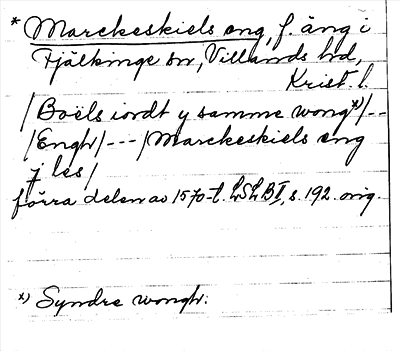 * Marckeskiels eng, f. äng i
Fjälkinge sn, Villands hd,
Krist. l.
/Boëls iordt y samme wong *)/--
/Enghr/---/Marckeskiels eng
j les/
förra delen av 1570-t. LSLB II, s. 192. orig.
*) Syndre wongh: